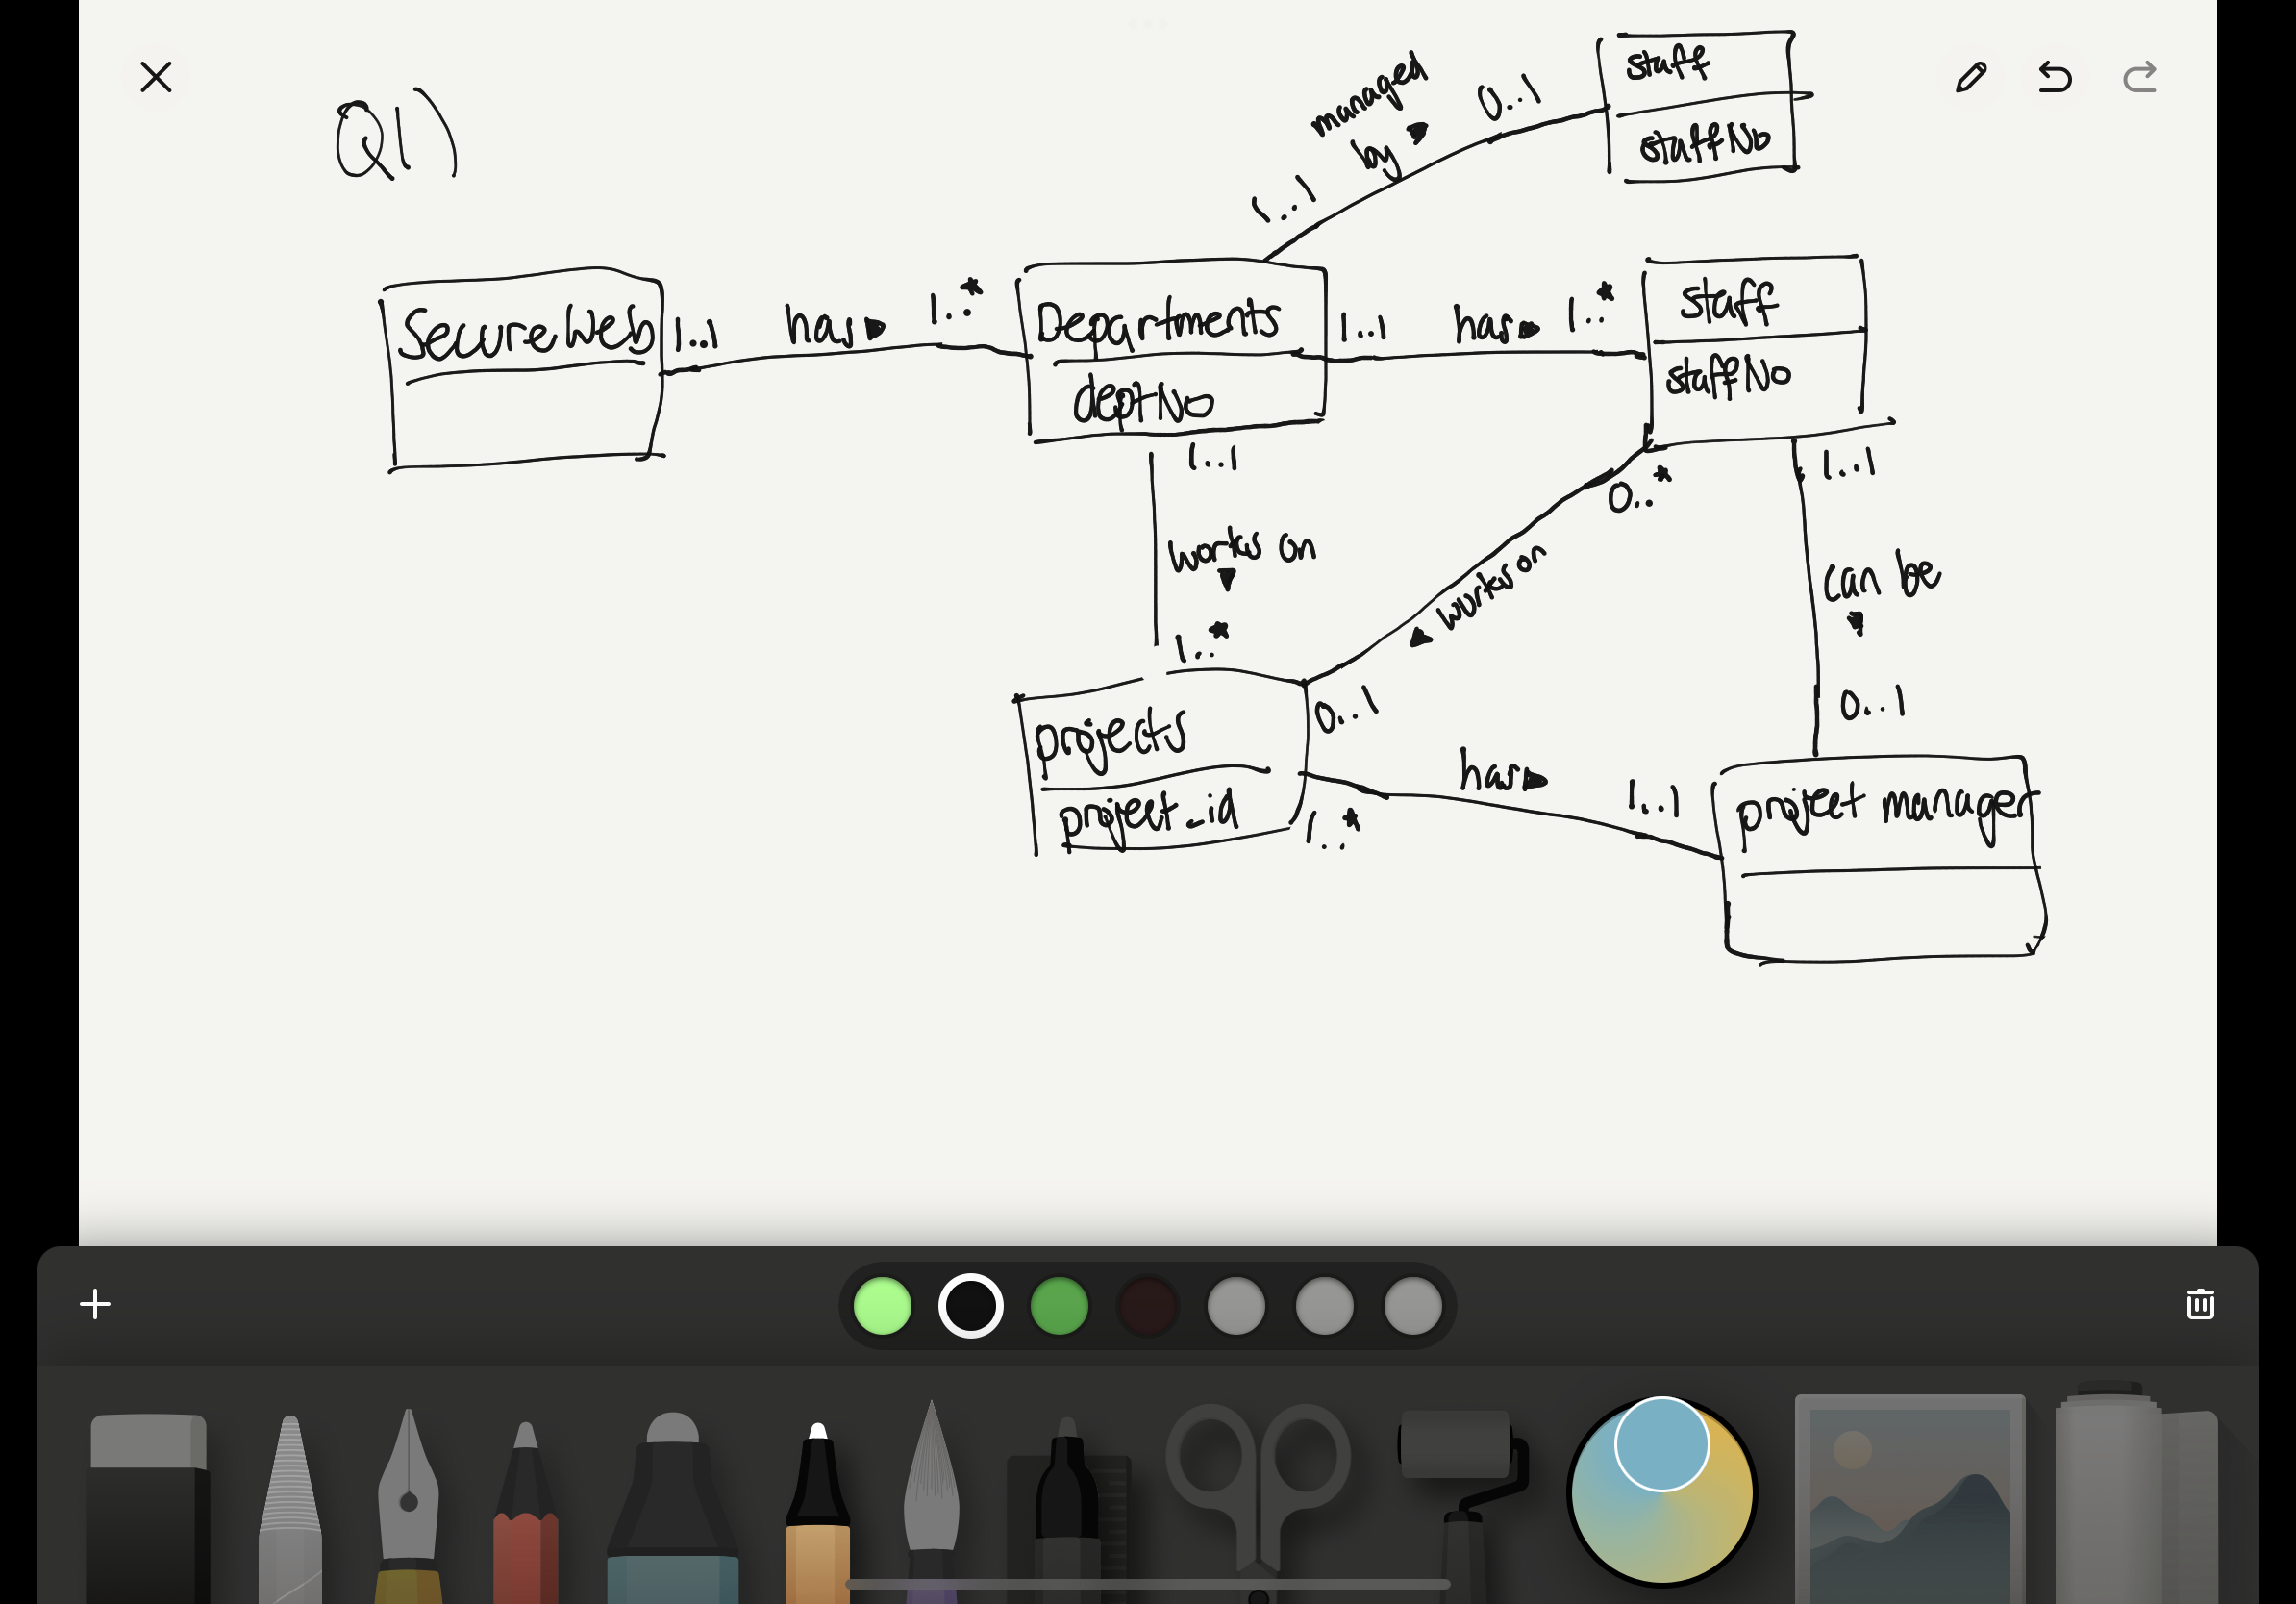 Q1)
managed
by
0..1
1..1
staff
staffNo
SecureWeb
1..1
has
1..*
Departments
deptNo
1..1
has
1..*
staff
staffNo
1..1
works on
1..*
0..*
works on
0..1
1..1
can be
0..1
projects
project_id
1..*
has
1..1
project manager